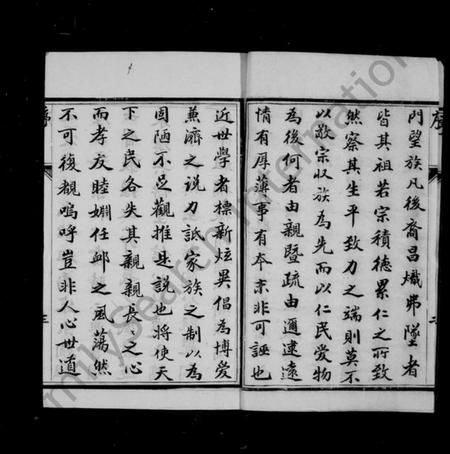 序
門望族凡後裔昌熾弗墜者
皆其祖若宗積德累仁之所致
然察其生平致力之端則莫不
以敬宗收族為先而以仁民愛物
為後何者由親暨疏由邇逮遠
情有厚薄事有本末非可誣也
二
近世學者標新炫異倡為博愛
兼濟之說力詆家族之制以為
固陋不足觀推其說也將使天
下之民各失其親親長長之心
而孝友睦婣任卹之風蕩然
不可復覩嗚呼豈非人心世道
序
三
FamilySearch International